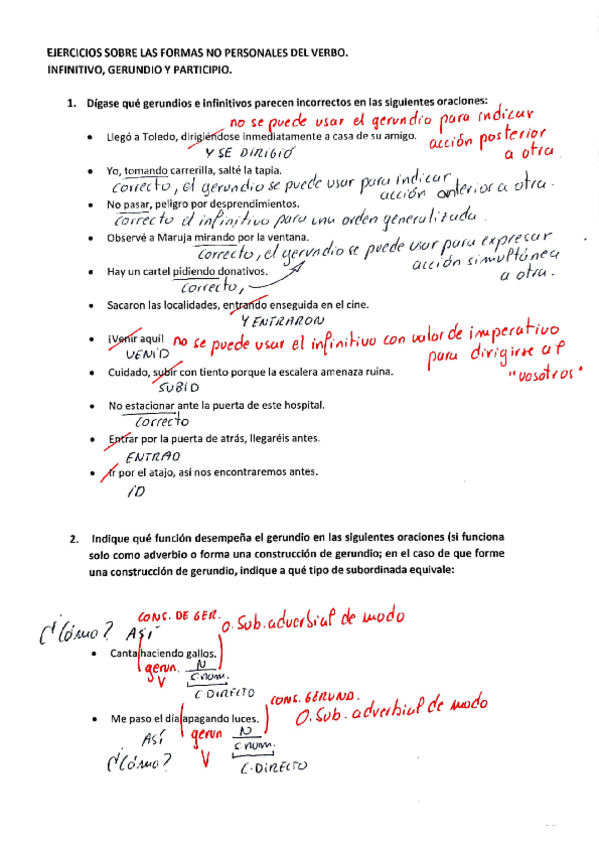 EJERCICIOS SOBRE LAS FORMAS NO PERSONALES DEL VERBO.
INFINITIVO, GERUNDIO Y PARTICIPIO.
1. Dígase qué gerundios e infinitivos parecen incorrectos en las siguientes oraciones:
no se puede usar el gerundio para indicar
acción posterior
a otra.
• Llegó a Toledo, dirigiéndose inmediatamente a casa de su amigo.
Y SE DIRIGIÓ
• Yo, tomando carrerilla, salté la tapia.
correcto, el gerundio se puede usar para indicar
acción anterior a otra.
• No pasar, peligro por desprendimientos.
correcto el infinitivo para una orden generalizada.
• Observé a Maruja mirando por la ventana.
correcto, el gerundio se puede usar para expresar
acción simultánea
a otra.
• Hay un cartel pidiendo donativos.
correcto,
• Sacaron las localidades, entrando enseguida en el cine.
Y ENTRARON
• ¡Venir aquí!
VENID
no se puede usar el infinitivo con valor de imperativo
para dirigirse a
"vosotros"
• Cuidado, subir con tiento porque la escalera amenaza ruina.
SUBID
• No estacionar ante la puerta de este hospital.
correcto
• Entrar por la puerta de atrás, llegaréis antes.
ENTRAD
• Ir por el atajo, así nos encontraremos antes.
ID
2. Indique qué función desempeña el gerundio en las siguientes oraciones (si funciona
solo como adverbio o forma una construcción de gerundio; en el caso de que forme
una construcción de gerundio, indique a qué tipo de subordinada equivale:
CONS. DE GER.
O. Sub. adverbial de modo
¿Cómo? ASÍ
• Canta haciendo gallos.
gerun. N
V S. nom.
C. DIRECTO
CONS. GERUND.
O. Sub. adverbial de modo
• Me paso el día apagando luces.
ASÍ gerun N
S. nom.
¿Cómo? V C. DIRECTO